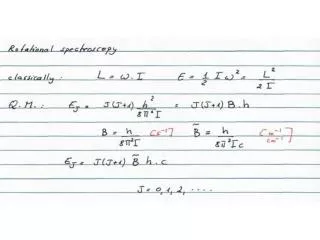 Rotational spectroscopy
classically: L = ω.I E = 1/2 I ω² = L²/2I
Q.M.: E_J = J(J+1) h²/8π²I = J(J+1) B.h
B = h/8π²I [s⁻¹] B̃ = h/8π²Ic [m⁻¹ cm⁻¹]
E_J = J(J+1) B̃ h.c
J = 0,1,2, ....